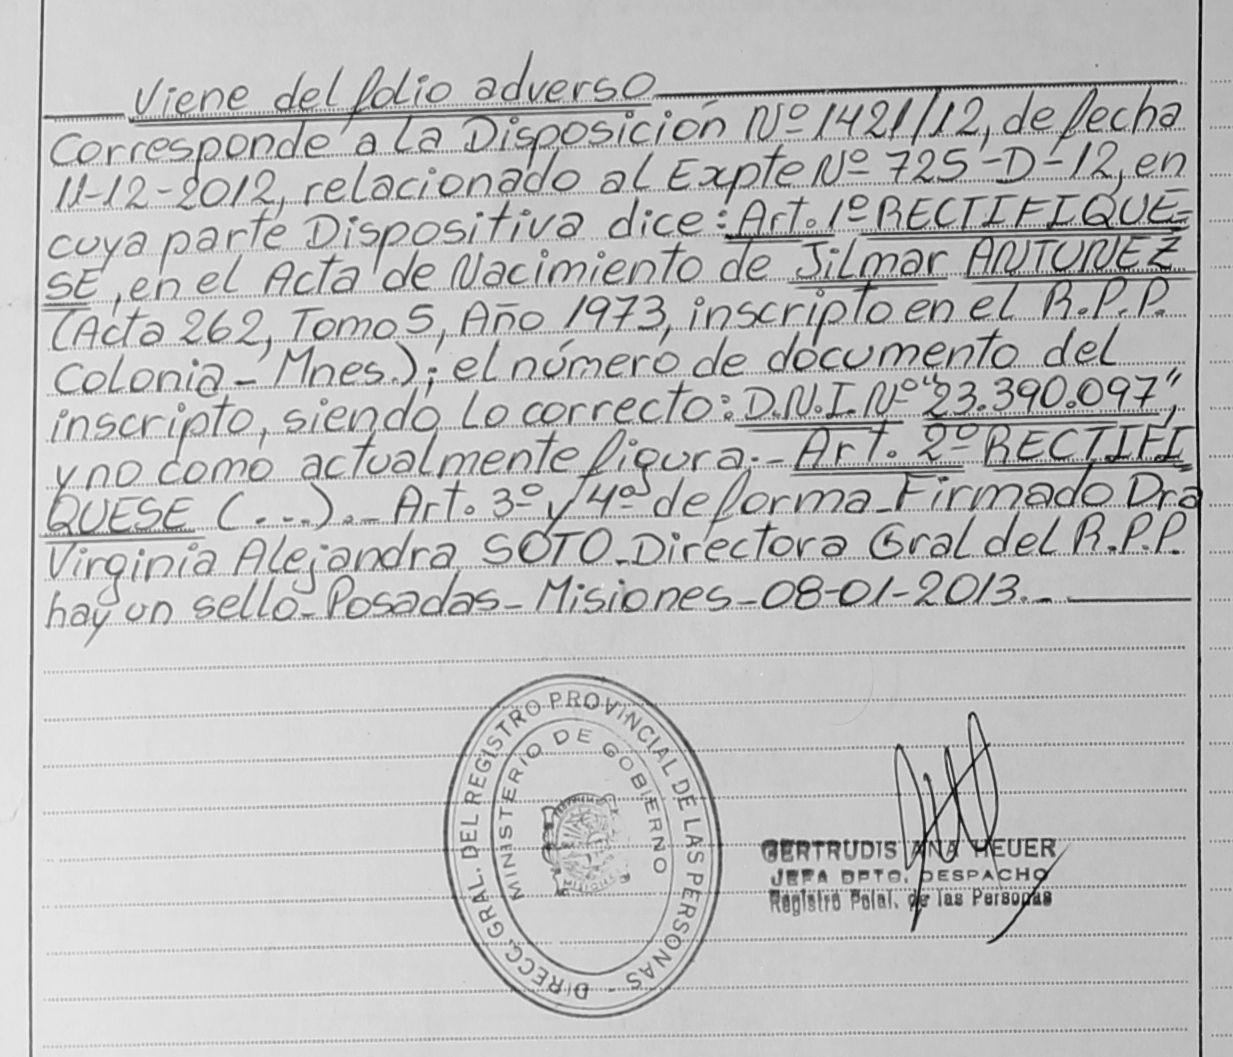 Viene del folio adverso
Corresponde a la Disposición Nº 1421/12, de fecha
11-12-2012, relacionado al Expte Nº 725-D-12, en
cuya parte Dispositiva dice: Art. 1º RECTIFIQUE=
SE, en el Acta de Nacimiento de Jilmar ANTUNEZ
(Acta 262, Tomo 5, Año 1973, inscripto en el R.P.P.
Colonia - Mnes.); el número de documento del
inscripto, siendo lo correcto: D.N.I. Nº "23.390.097",
y no como actualmente figura.- Art. 2º RECTIFI=
QUESE (...).- Art. 3º y 4º de forma - Firmado Dra
Virginia Alejandra SOTO - Directora Gral del R.P.P.
hay un sello - Posadas - Misiones - 08-01-2013.-
DIRECC. GRAL. DEL REGISTRO PROVINCIAL DE LAS PERSONAS -
MINISTERIO DE GOBIERNO
GERTRUDIS ANA HEUER
JEFA DPTO. DESPACHO
Registro Pcial. de las Personas